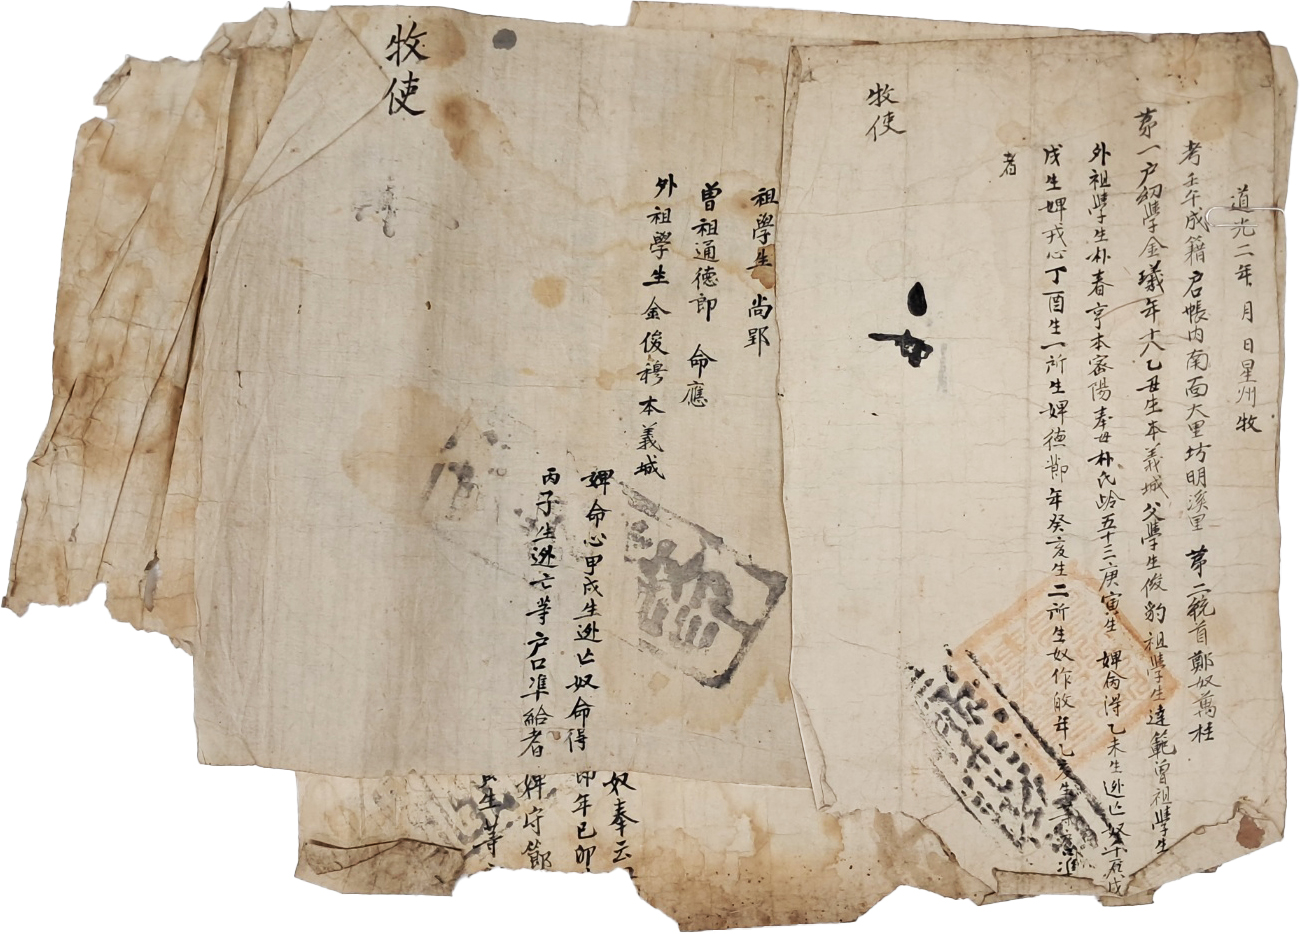 道光二年 月 日星州牧
考壬午成籍戶帳內南面大里坊明溪里 第二統首鄭奴萬桂
第一戶幼學金 年十八乙丑生本義城父學生俊豹祖學生達範曾祖學生
外祖學生朴春亨本密陽奉母朴氏齡五十三庚寅生 婢 得乙未生逃亡奴 戊
戌生婢戎心丁酉生一所生婢德節年癸亥生二所生奴作 年乙亥生等 準
者
牧使
祖學生 尚郢
曾祖通德郎 命應
外祖學生金俊穆本義城
婢命心甲戌生逃亡奴命得
丙子生逃亡等戶口準給者
牧使
奴奉云
卽年己卯
婢守節
生等